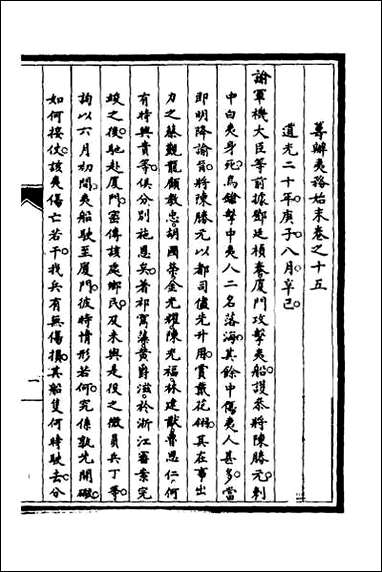 籌辦夷務始末卷之十五
道光二十年庚子八月辛巳
諭軍機大臣等前據鄧廷楨奏廈門攻擊夷船護恭將陳勝元刺
中白夷身死烏鎗擊中夷人二名落海其餘中傷夷人甚多當
即明降諭旨將陳勝元以都司儘先升用賞戴花翎其在事出
力之蔡觀龍顧教忠胡國榮金光耀陳光福林建猷魯思仁何
有時與貴等俱分別施恩矣著祁寯藻黃爵滋於浙江審案完
竣之後馳赴廈門密傳該處鄉民及未與是役之微員兵丁等
詢以六月初間夷船駛至廈門彼時情形若何究係孰先開礮
如何接仗該夷傷亡若干我兵有無傷損其船隻何時駛去分
一